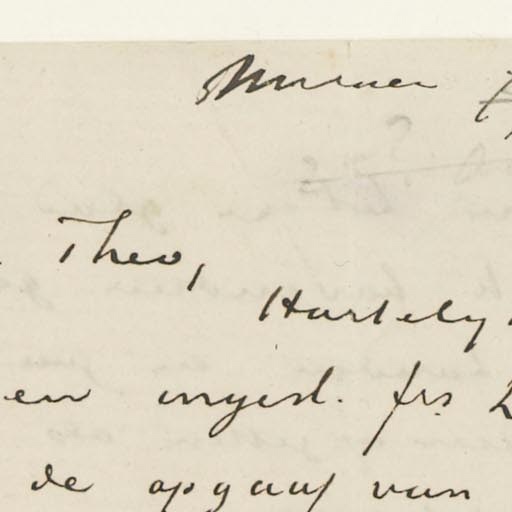 Nuenen
Theo,
Hartelijk
en ingesl. frs. 2
de opgaaf van